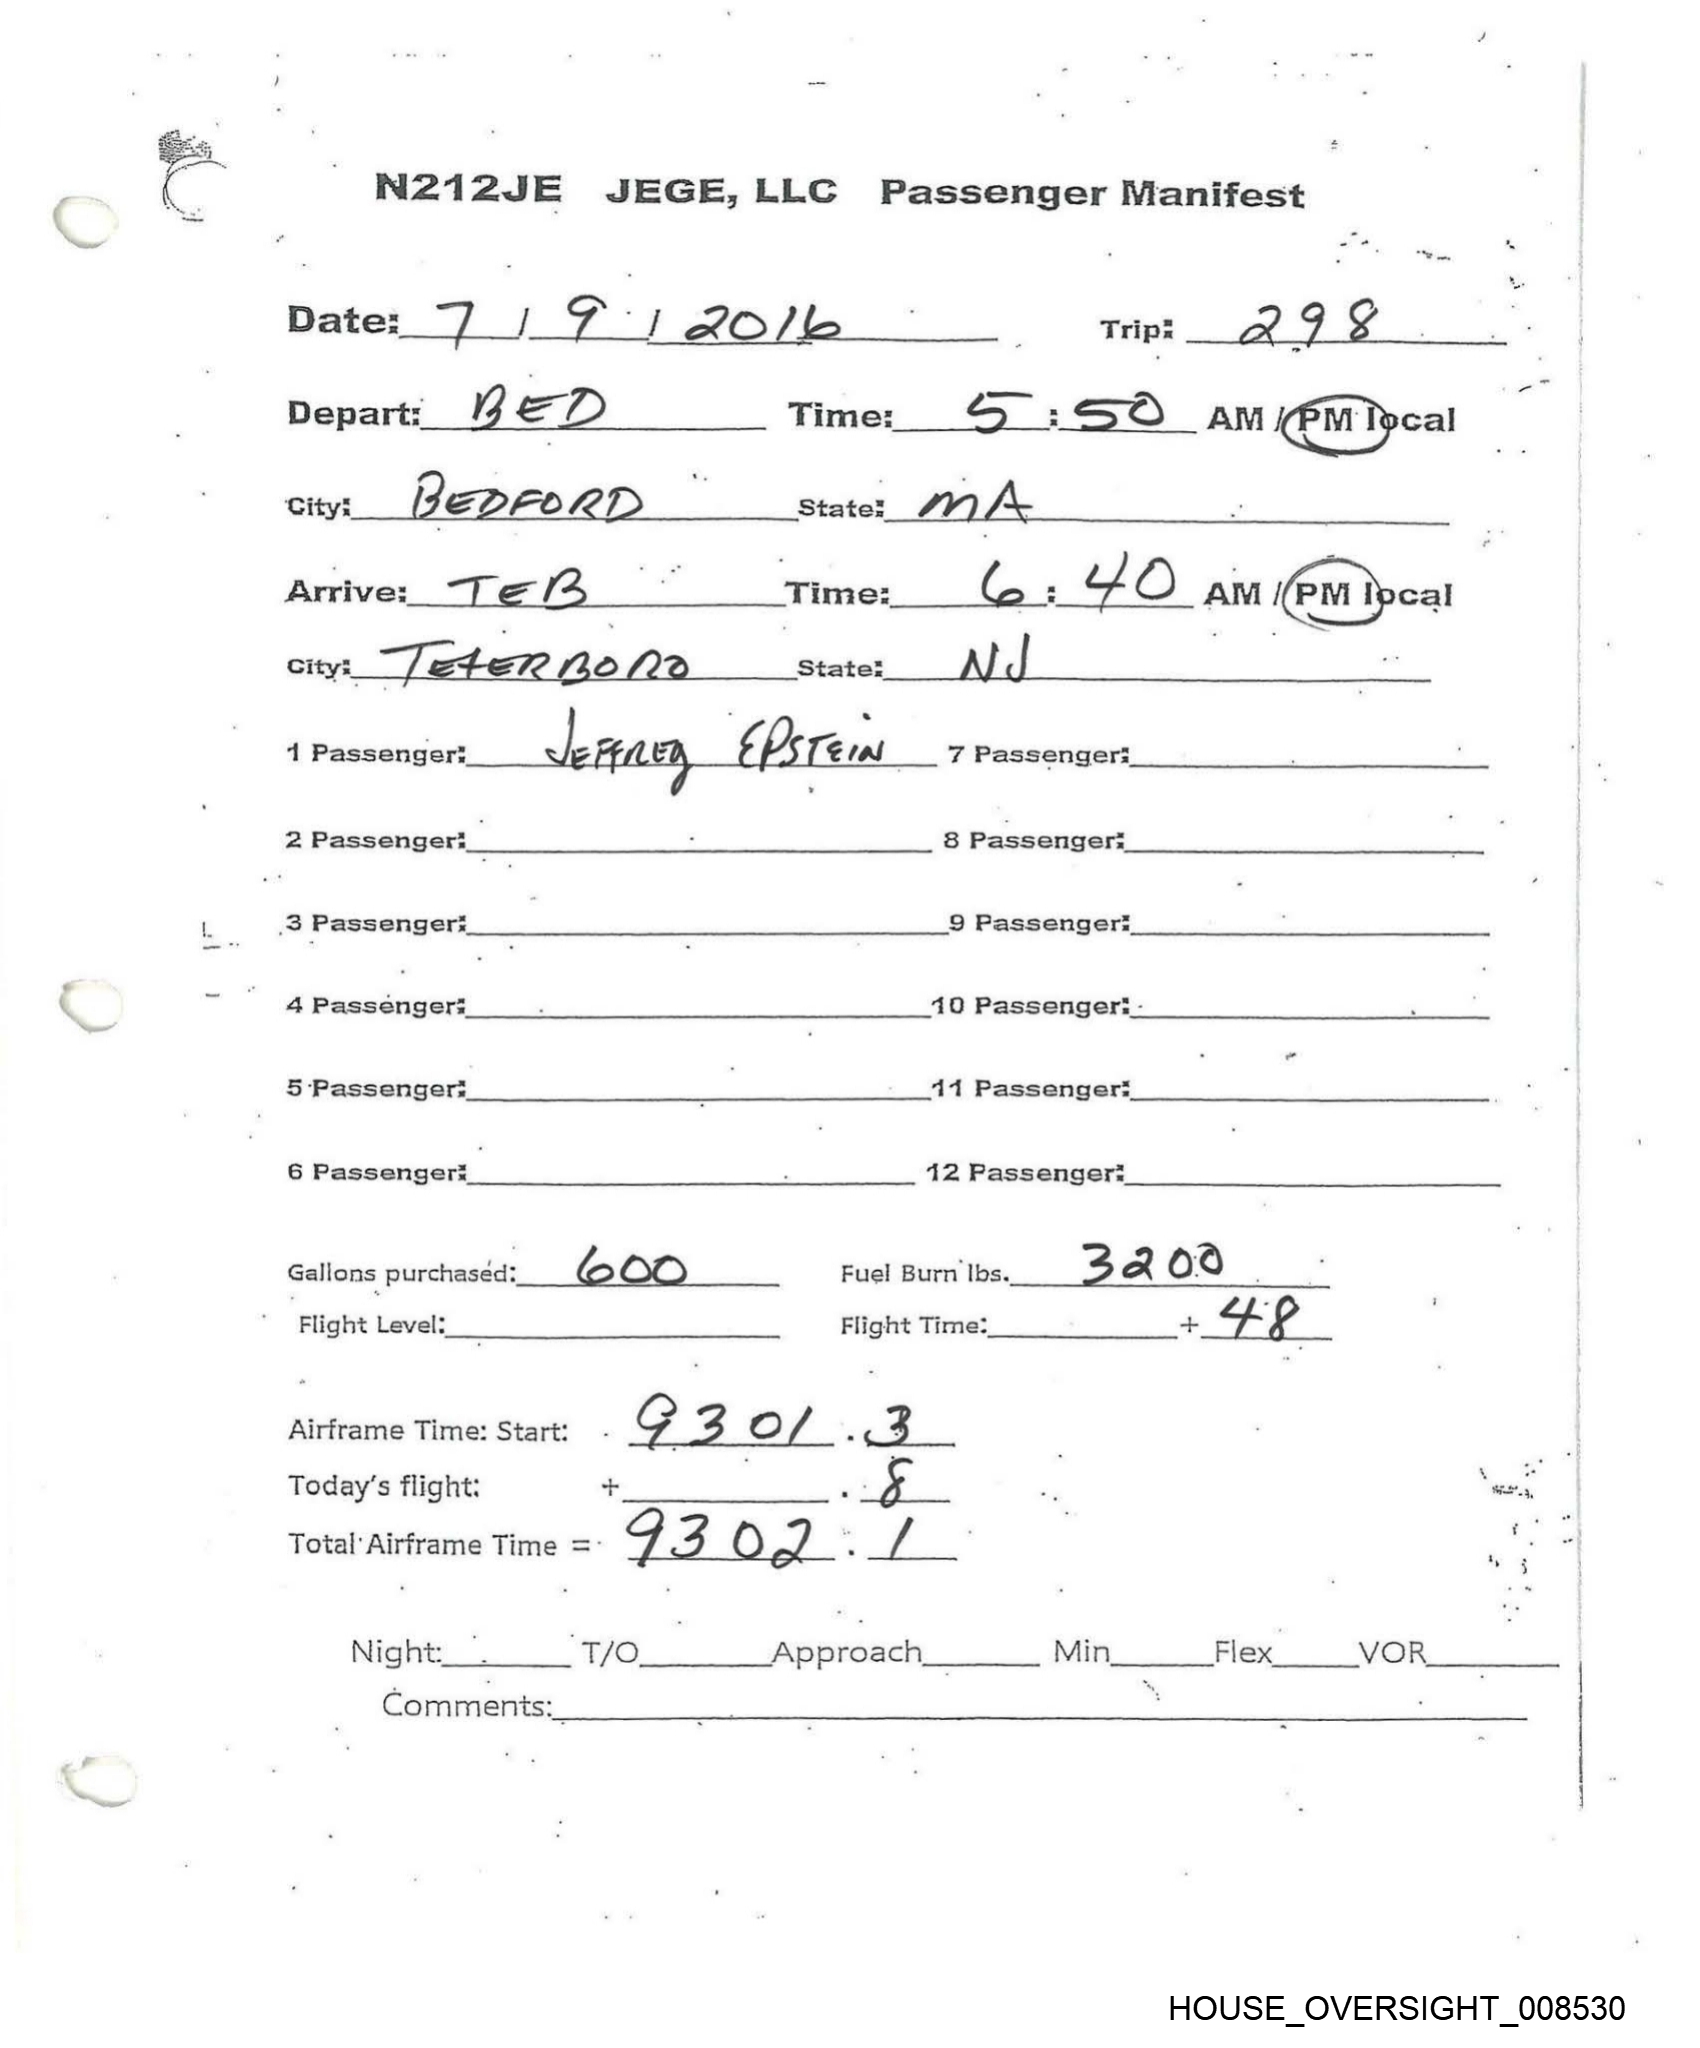 N212JE JEGE, LLC Passenger Manifest
Date: 7 / 9 / 2016 Trip: 298
Depart: BED Time: 5 : 50 AM / PM local
City: BEDFORD State: MA
Arrive: TEB Time: 6 : 40 AM / PM local
City: TETERBORO State: NJ
1 Passenger: JEFFREY EPSTEIN 7 Passenger:
2 Passenger: 8 Passenger:
3 Passenger: 9 Passenger:
4 Passenger: 10 Passenger:
5 Passenger: 11 Passenger:
6 Passenger: 12 Passenger:
Gallons purchased: 600 Fuel Burn lbs. 3200
Flight Level: Flight Time: + 48
Airframe Time: Start: 9301 . 3
Today's flight: + . 8
Total Airframe Time = 9302 . 1
Night: T/O Approach Min Flex VOR
Comments:
HOUSE_OVERSIGHT_008530